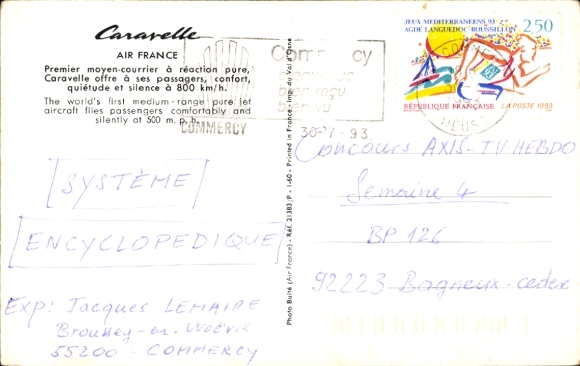 Caravelle
AIR FRANCE
Premier moyen-courrier à réaction pure,
Caravelle offre à ses passagers, confort,
quiétude et silence à 800 km/h.
The world's first medium-range pure jet
aircraft flies passengers comfortably and
silently at 500 m.p.h.
COMMERCY
Commercy
bien reçu
bien vu
30-7-93
JEUX MEDITERRANEENS 93
AGDE LANGUEDOC-ROUSSILLON
2,50
RÉPUBLIQUE FRANÇAISE
LA POSTE 1993
COMMERCY
MEUSE
Photo Bulté (Air France) - Réf. 21383/P - 1-60 - Printed in France - Imp. du Val d'Osne
[SYSTÈME
ENCYCLOPEDIQUE]
EXP: Jacques LEMAIRE
Broussey-en-Woëvre
55200 - COMMERCY
Concours AXIS-TV HEBDO
Semaine 4
BP 126
92223 Bagneux-cedex